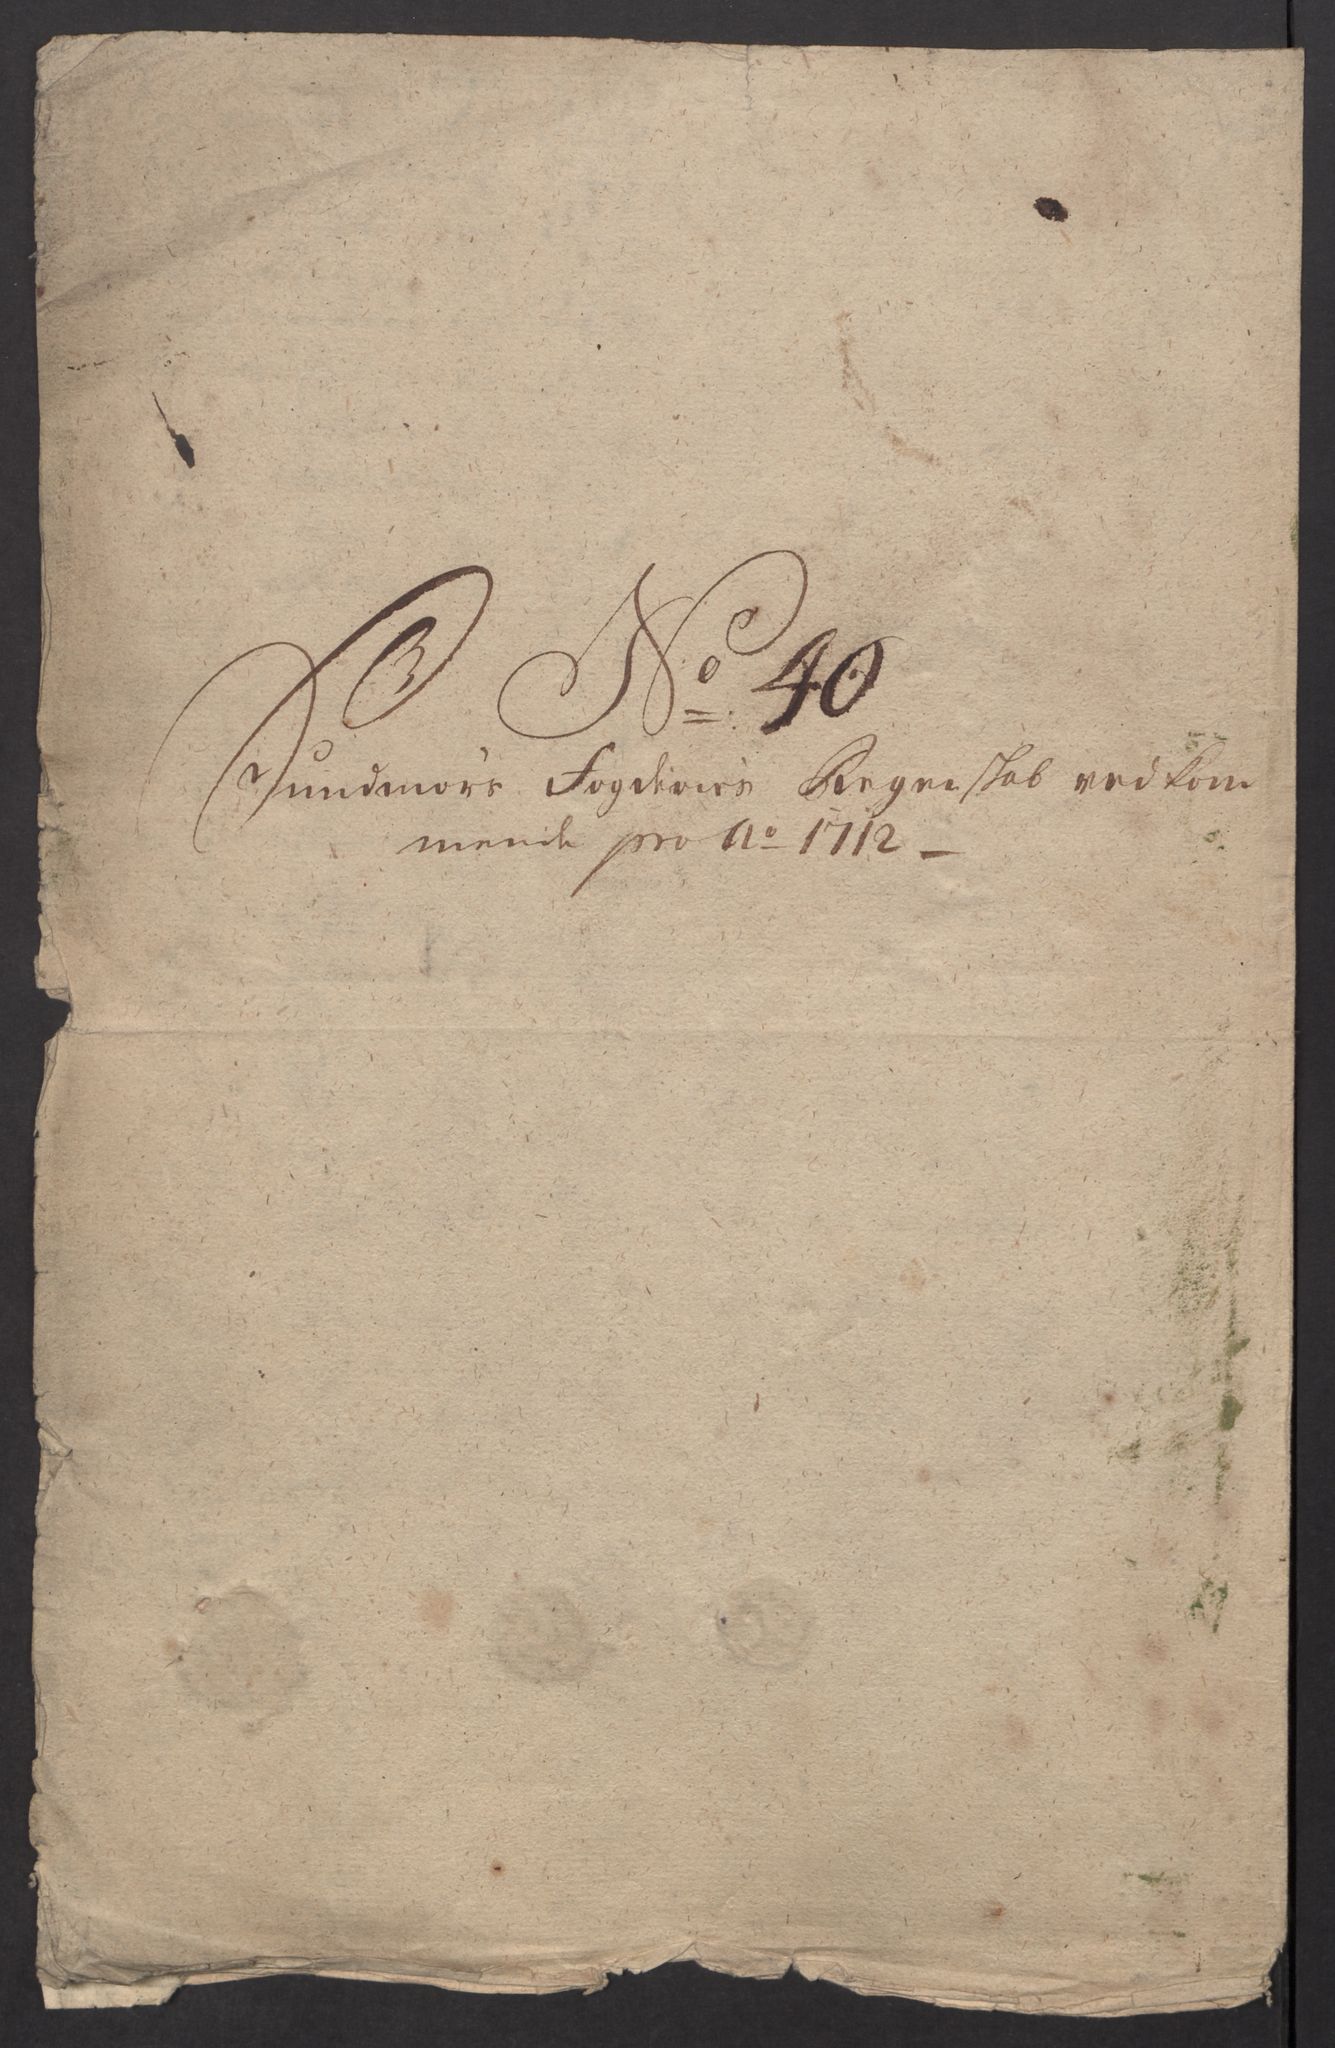 No 40
Sundmørs Fogderies Regenskab vedkom
mende pro Ao 1712